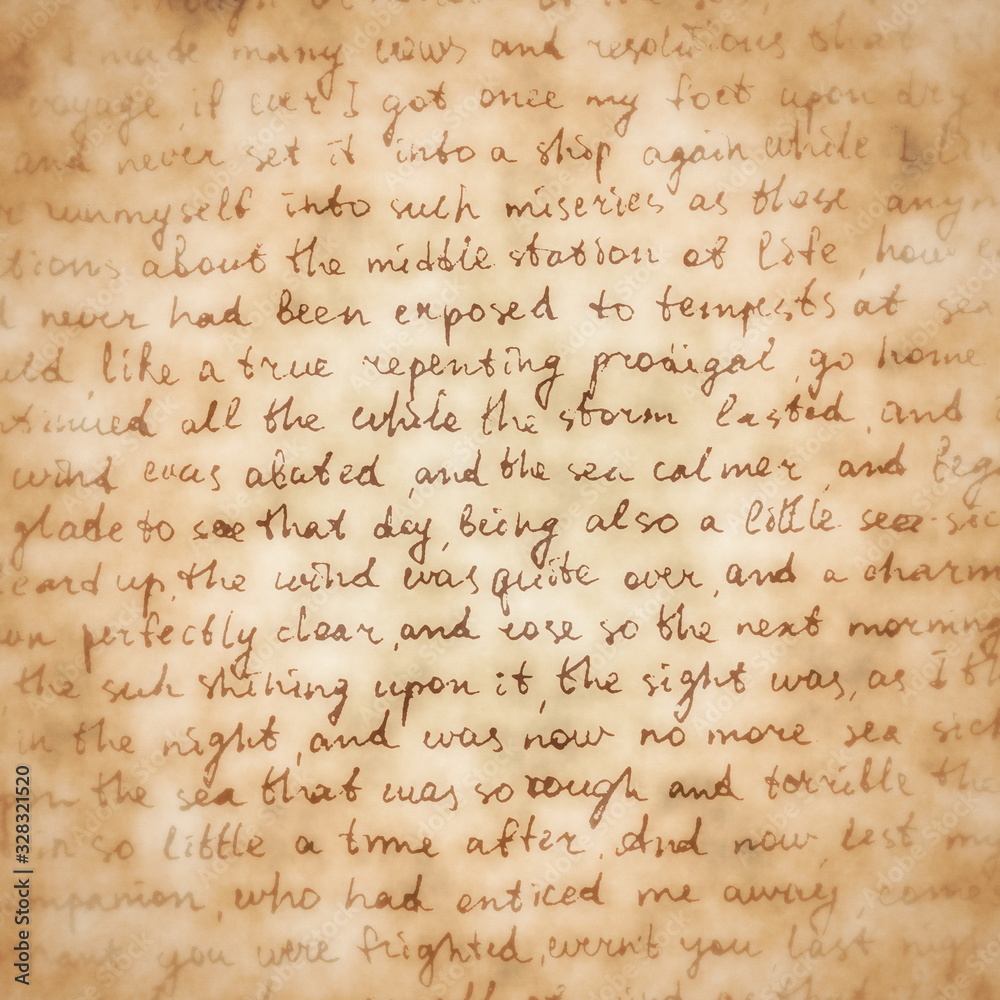 though
I made many vows and resolutions that
voyage, if ever I got once my foot upon dry
and never set it into a ship again while I
r runmyself into such miseries as these anym
tions about the middle station of life, how e
d never had been exposed to tempests at sea
uld, like a true repenting prodigal, go home
ntinued all the while the storm lasted, and
wind was abated, and the sea calmer, and beg
glade to see that day, being also a little sea-sic
leard up, the wind was quite over, and a charm
wn perfectly clear, and rose so the next morning
the suh shining upon it, the sight was, as I th
in the night, and was now no more sea sick
on the sea that was so rough and terrible the
in so little a time after. And now, lest my
mpanion, who had enticed me away, come
rant you were frighted, wern't you last nigh
Adobe Stock | #328321520
Adobe Stock